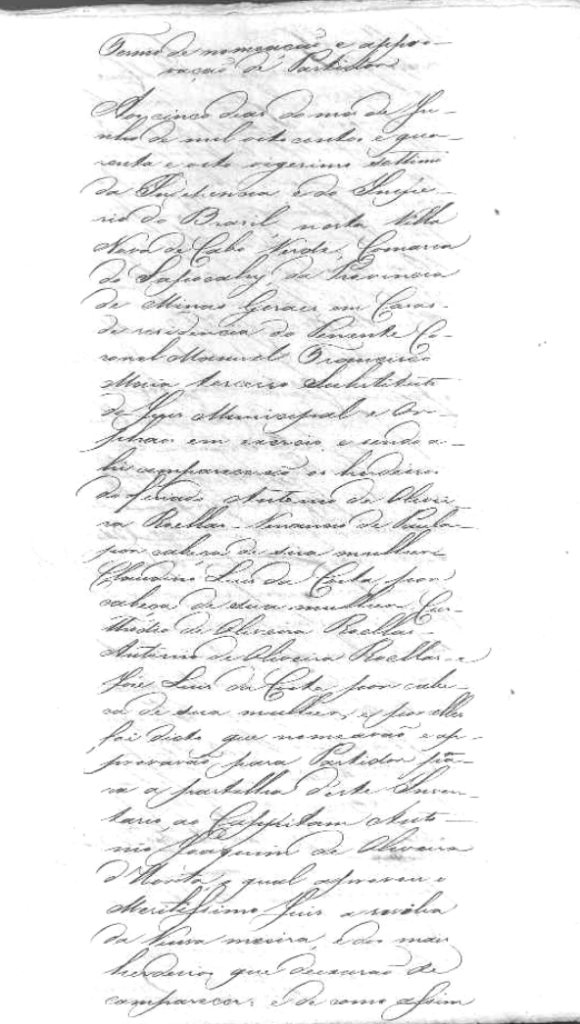 Termo de nomeação e appro-
vação de Partidor
Aos cinco dias do mes de Ju-
nho de mil oito centos e qua-
renta e oito vigesimo settimo
da Independencia e do Impe-
rio do Brasil nesta Villa
Nova de Cabo Verde, Comarca
do Sapocahy da Provincia
de Minas Geraes em Casas
de residencia do Tenente Co-
ronel Manoel Francisco
Maria terceiro Substituto
do Juis Municipal e Or-
phaos em exercicio e sendo a-
hi comparecerão os herdeiros
do finado Antonio de Olivei-
ra Roellas - de Paula
por cabeça de sua mulher
Claudino Luis da Costa por
cabeça de sua mulher, Cus-
thodio de Oliveira Roellas -
Antonio de Oliveira Roellas - e
José Luis da Costa por cabe-
ça de sua mulher, e por elles
foi dicto que nomeavão e ap-
provavão para Partidor pa-
ra a partilha d'este Inven-
tario, ao Cappitam Anto-
nio Joaquim de Oliveira
o qual aprovou o
Meritissimo Juis a revelia
da Viuva meeira, e dos mais
herdeiros que deixarão de
comparecer; e de como assim